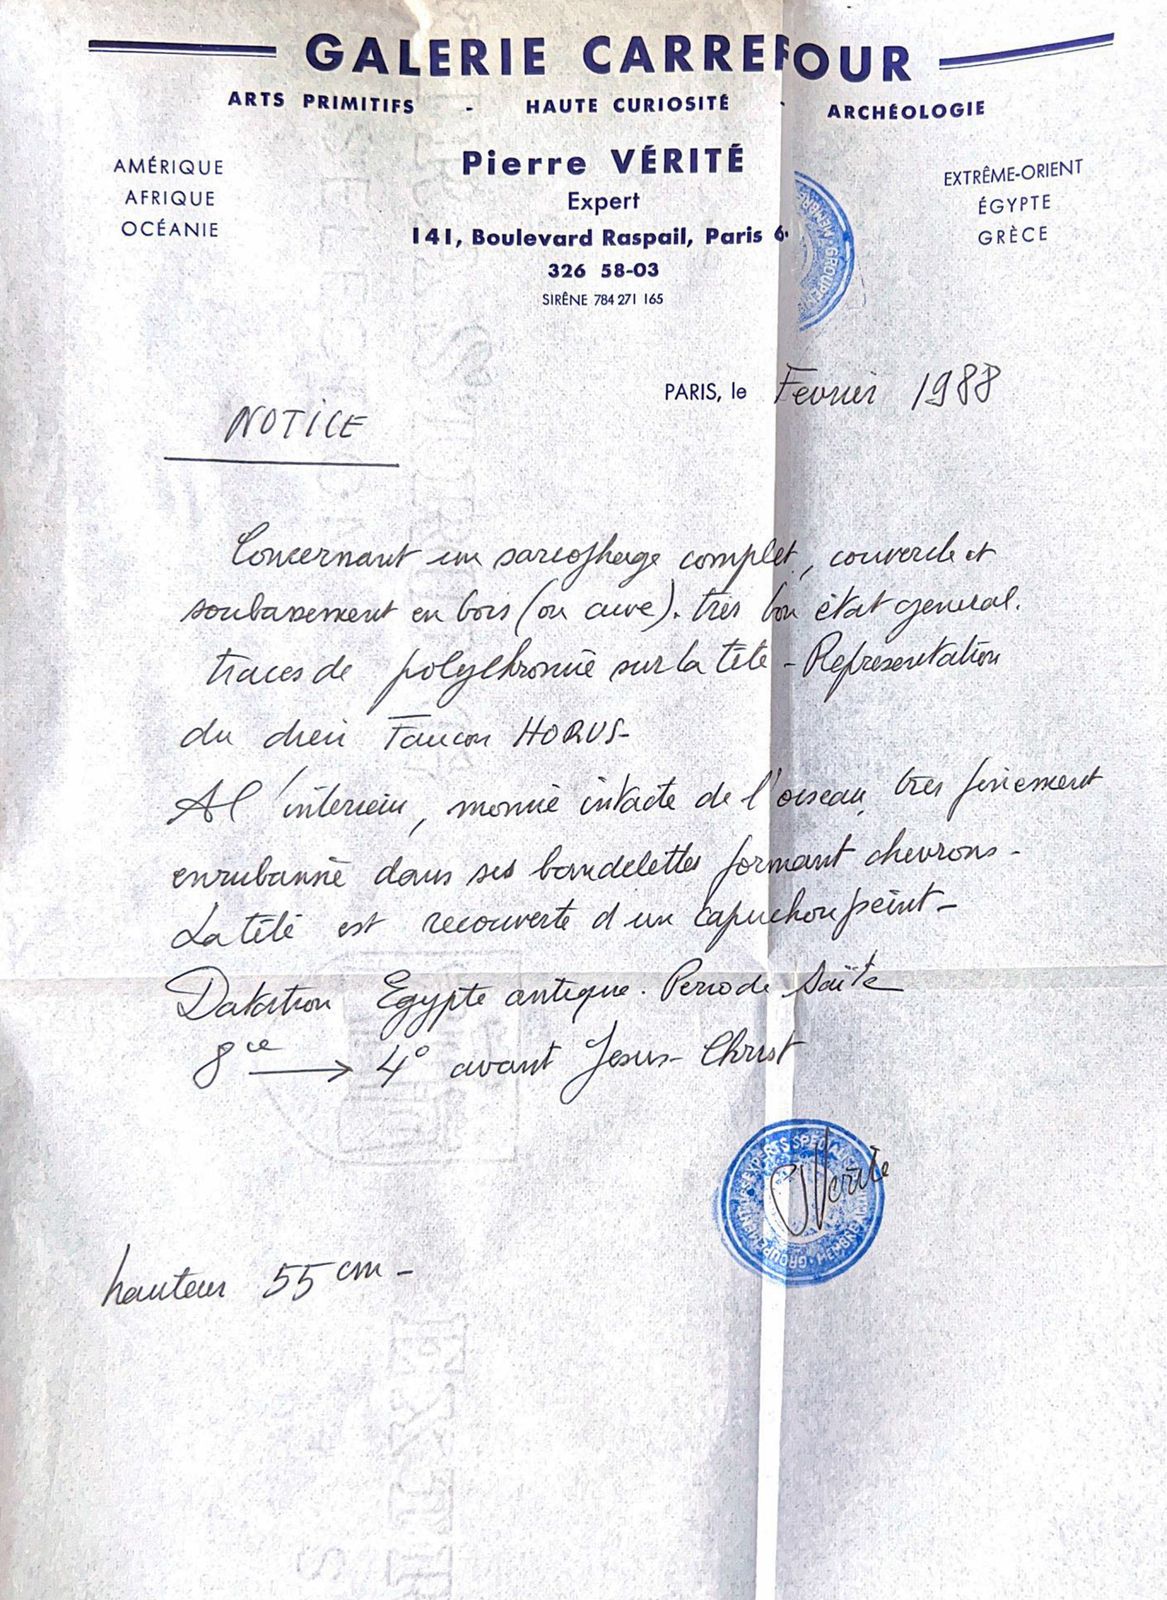 GALERIE CARREFOUR
ARTS PRIMITIFS - HAUTE CURIOSITÉ - ARCHÉOLOGIE
AMÉRIQUE
AFRIQUE
OCÉANIE
Pierre VÉRITÉ
Expert
141, Boulevard Raspail, Paris 6
326 58-03
SIRÈNE 784 271 165
EXTRÊME-ORIENT
ÉGYPTE
GRÈCE
MEMBRE GROUPEMENT
PARIS, le Fevrier 1988
NOTICE
Concernant un sarcophage complet, couvercle et
soubassement en bois (ou cuve). très bon état general.
traces de polychromie sur la tête - Representation
du dieu Faucon HORUS-
A l'interieur, momie intacte de l'oiseau, tres finement
enrubanné dans ses bandelettes formant chevrons-
La tête est recouverte d'un capuchon peint-
Datation Egypte antique. Periode Saïte
8ce → 4° avant Jesus-Christ
GROUPEMENT EXPERTS SPECIAL MEMBRE
Vérité
hauteur 55 cm-